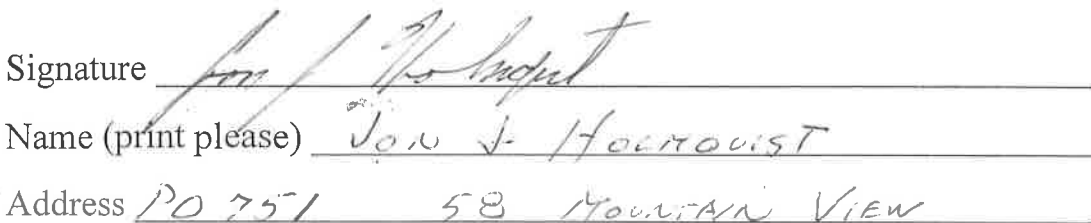 Signature Jon J Holmquist
Name (print please) JON J. HOLMQUIST
Address PO 751 58 MOUNTAIN VIEW